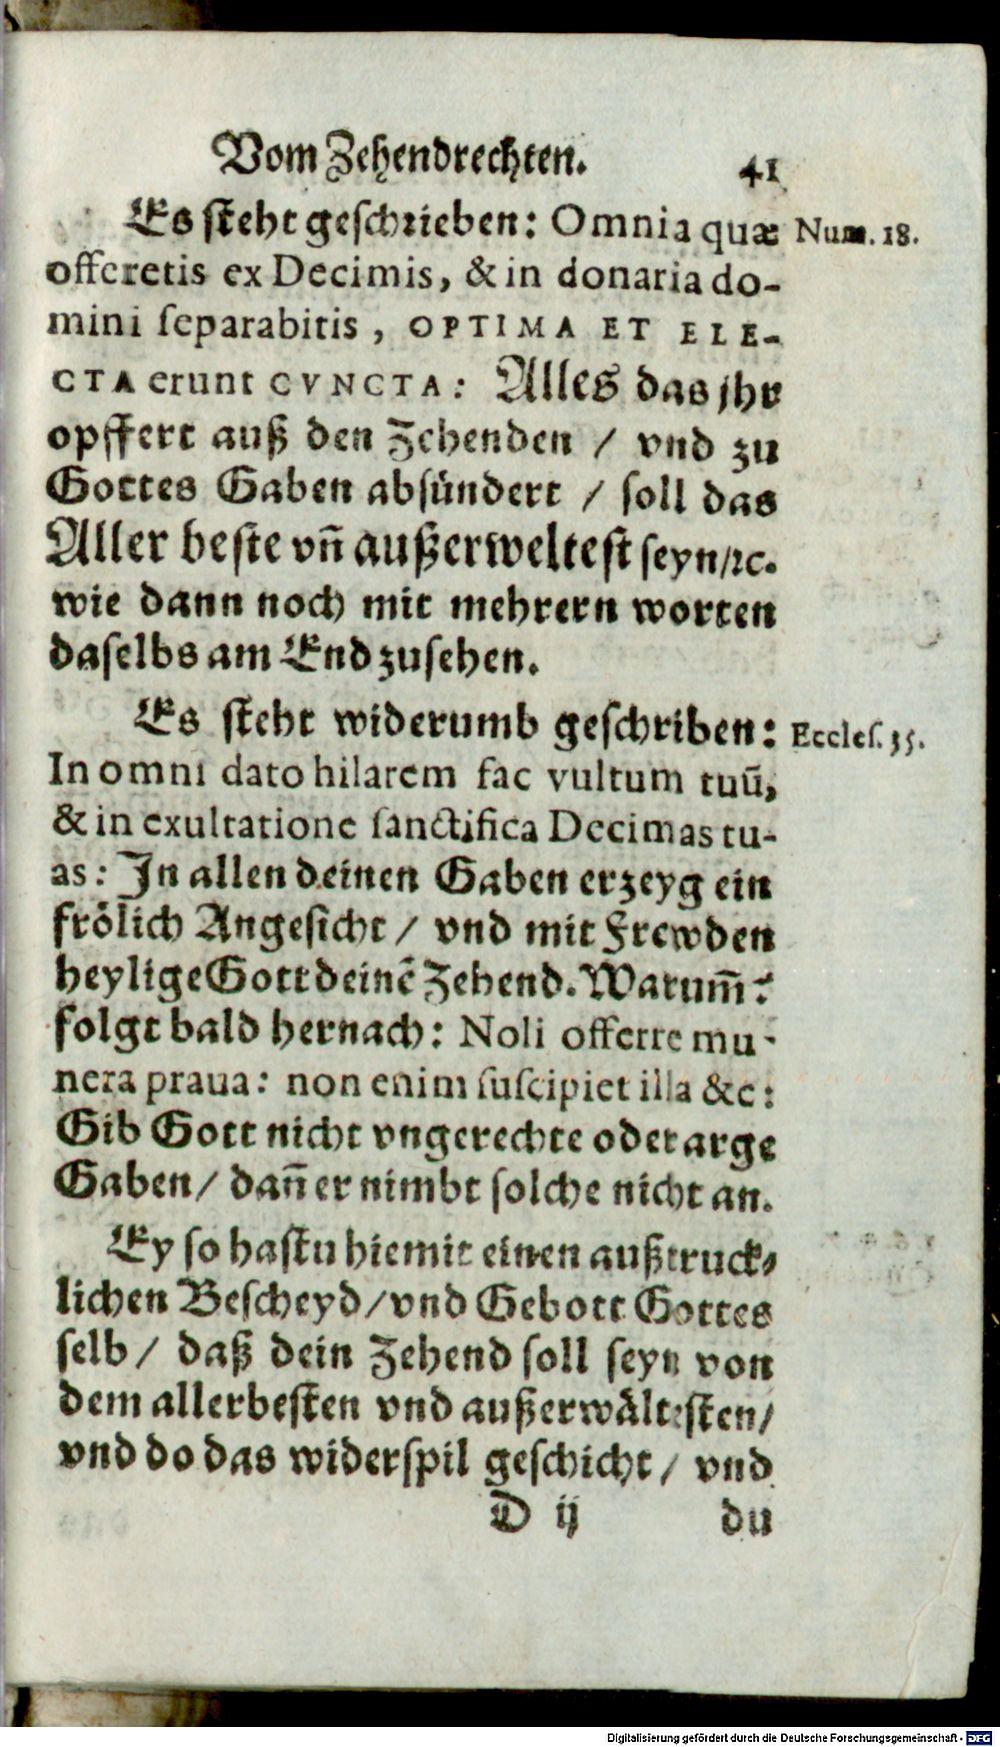 Vom Zehendrechten. 41
Es steht geschrieben: Omnia quæ Num. 18.
offeretis ex Decimis, & in donaria do-
mini separabitis, OPTIMA ET ELE-
CTA erunt CVNCTA: Alles das jhr
opffert auß den Zehenden / vnd zu
Gottes Gaben absündert / soll das
Aller beste vñ außerweltest seyn/ꝛc.
wie dann noch mit mehrern worten
daselbs am End zusehen.
Es steht widerumb geschriben: Eccles. 35.
In omni dato hilarem fac vultum tuũ,
& in exultatione sanctifica Decimas tu-
as: In allen deinen Gaben erzeyg ein
frölich Angesicht / vnd mit Frewden
heylige Gott deinẽ Zehend. Warum̃?
folgt bald hernach: Noli offerre mu-
nera praua: non enim suscipiet illa &c:
Gib Gott nicht vngerechte oder arge
Gaben / dañ er nimbt solche nicht an.
Ey so hastu hiemit einen außtruck-
lichen Bescheyd / vnd Gebott Gottes
selb / daß dein Zehend soll seyn von
dem allerbesten vnd außerwältesten /
vnd do das widerspil geschicht / vnd
D ij du
Digitalisierung gefördert durch die Deutsche Forschungsgemeinschaft - DFG